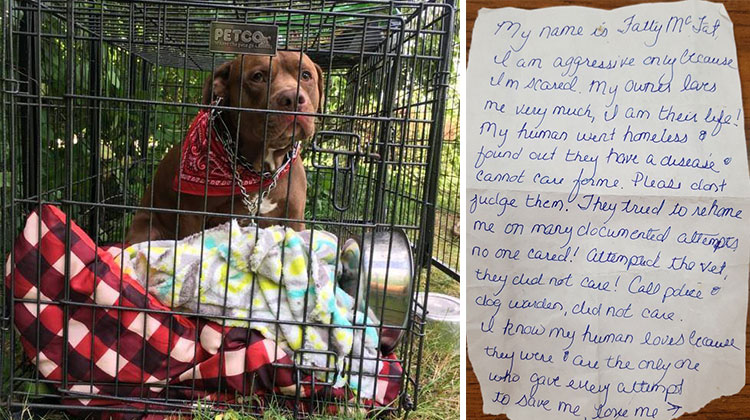 PETCO
My name is Fatty McFat,
I am aggressive only because
I'm scared. My owner loves
me very much, I am their life!
My human went homeless &
found out they have a disease &
cannot care for me. Please dont
judge them! They tried to rehome
me on many documented attempts,
no one cared! Attempted the vet,
they did not care! Call police &
dog warden, did not care.
I know my human loves because
they were & are the only one
who gave every attempt
to save me. love me →